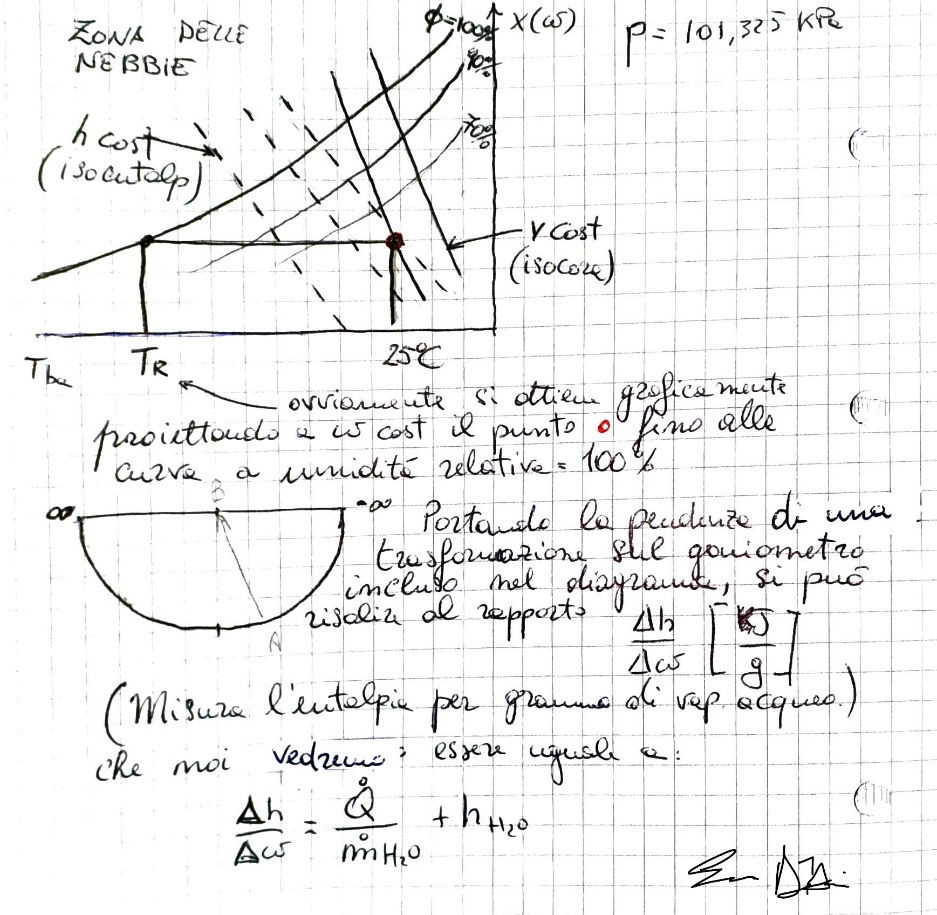 ZONA DELLE
NEBBIE
ϕ=100%
X(ω)
P= 101,325 KPa
90%
70%
h cost
(isoentalp)
v cost
(isocore)
Tba
TR
25°C
ovviamente si ottiene graficamente
proiettando a ω cost il punto o fino alla
curva a umidità relativa = 100%
∞
B
-∞
Portando la pendenza di una
trasformazione sul goniometro
incluso nel diagramma, si può
risalire al rapporto
Δh/Δω [KJ/g]
A
(Misura l'entalpia per grammo di vap. acqueo.)
che noi vedremo essere uguale a:
Δh/Δω = Q̇/ṁH₂O + hH₂O